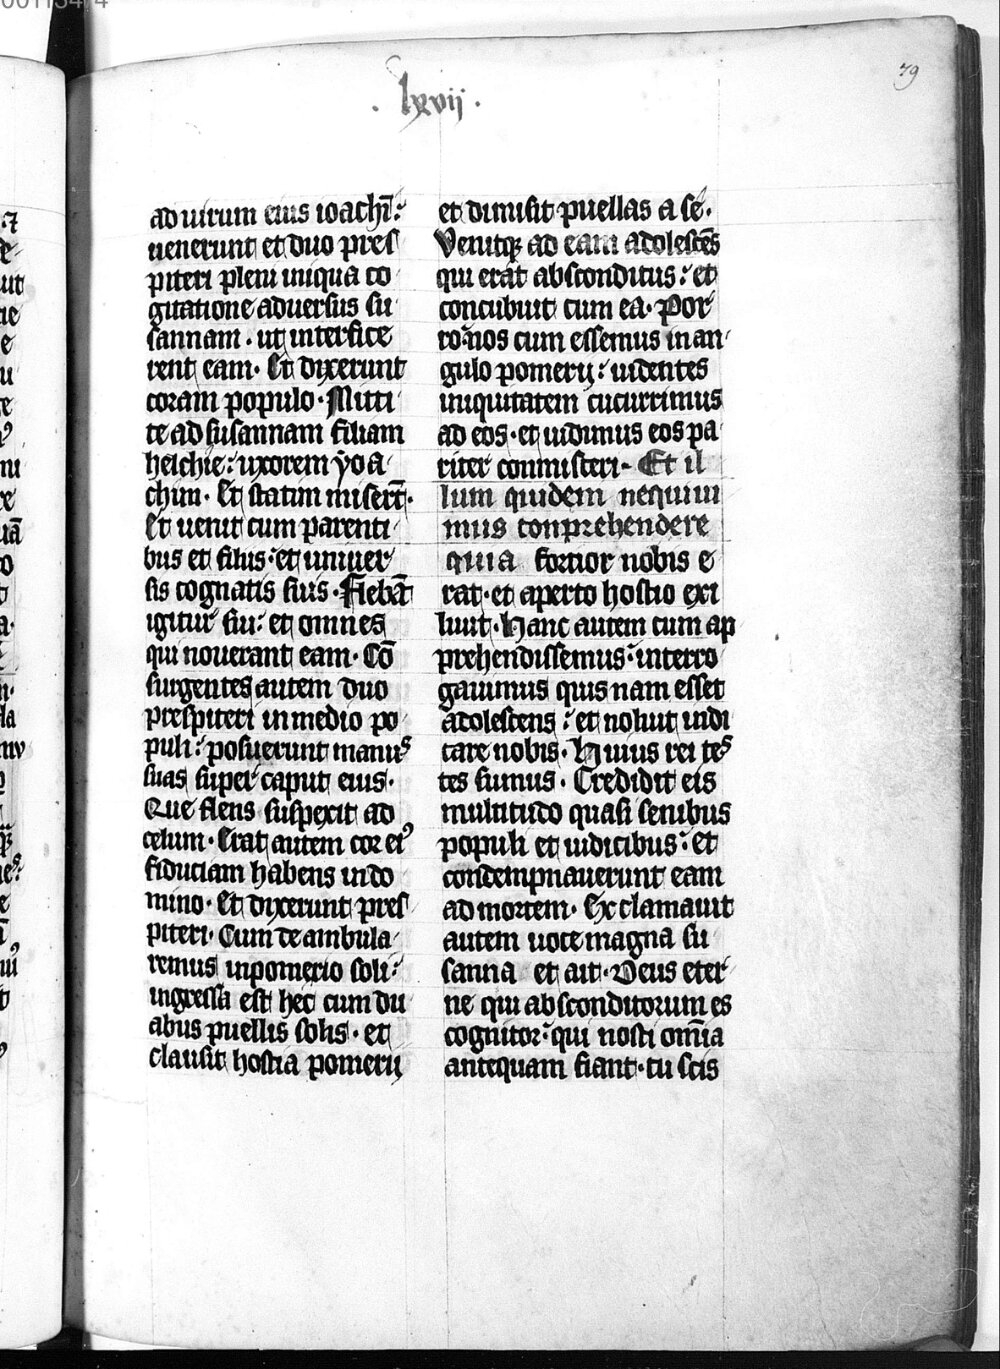 00113474
. lxvii .
79
ad uirum eius ioachĩ :
uenerunt et duo pres
piteri pleni iniqua co
gitatione aduersus su
sannam . ut interfice
rent eam . Et dixerunt
coram populo . Mitti
te ad susannam filiam
helchie : uxorem yoa
chim . Et statim miserũt .
Et uenit cum parenti
bus et filiis : et uniuer
sis cognatis suis . Flebãt
igitur sui : et omnes
qui nouerant eam . Cõ
surgentes autem duo
prespiteri in medio po
puli : posuerunt manus
suas super caput eius .
Que flens suspexit ad
celum . Erat autem cor ei⁹
fiduciam habens in do
mino . Et dixerunt pres
piteri . Cum deambula
remus in pomerio soli :
ingressa est hec cum du
abus puellis solis . et
clausit hostia pomerij
et dimisit puellas a se .
Venitqꝫ ad eam adolescẽs
qui erat absconditus : et
concubuit cum ea . Por
ro nos cum essemus in an
gulo pomerij : uidentes
iniquitatem cucurrimus
ad eos . et uidimus eos pa
riter conmisceri . Et il
lum quidem nequiui
mus conprehendere
quia fortior nobis e
rat . et aperto hostio exi
liuit . Hanc autem cum ap
prehendissemus : interro
gauimus quis nam esset
adolescens : et noluit indi
care nobis . Huius rei tes
tes sumus . Credidit eis
multitudo quasi senibus
populi et iudicibus : et
condempnauerunt eam
ad mortem . Exclamauit
autem uoce magna su
sanna et ait . Deus eter
ne qui absconditorum es
cognitor : qui nosti om̃ia
antequam fiant . tu scis